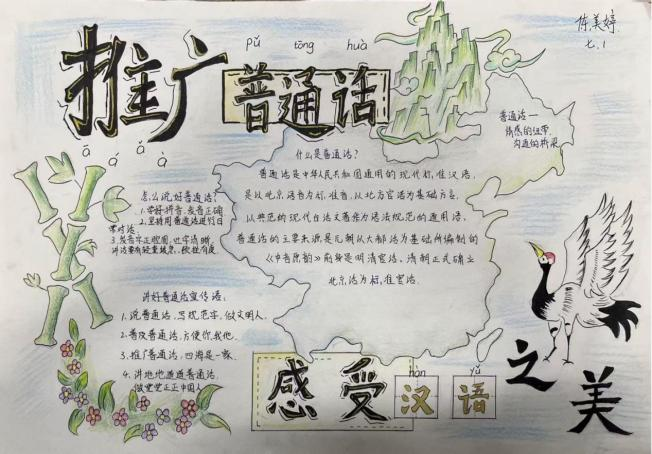 陈美婷
七.1
pǔ tōng huà
推广普通话
ā á ǎ à
普通话—
情感的纽带,
沟通的桥梁
什么是普通话?
普通话是中华人民共和国通用的现代标准汉语,
是以北京语音为标准音,以北方官话为基础方言,
以典范的现代白话文著作为语法规范的通用语,
普通话的主要来源是元朝以大都话为基础所编制的
《中音原韵》前身是明清官话、清朝正式确立
北京话为标准官话.
怎么说好普通话?
1.学好拼音,发音正确
2.坚持用普通话进行日
常对话.
3.发音字正腔圆,吐字清晰,
讲话要有轻重缓急、
讲好普通话宣传语:
1.说普通话,写规范字,做文明人.
2.普及普通话,方便你我他.
3.推广普通话,四海是一家.
4.讲地地道道普通话.
做堂堂正正中国人
hàn yǔ
感受汉语
之美